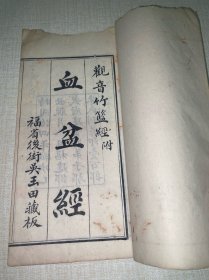 觀音竹籃經附
血盆經
福省後街吳玉田藏板